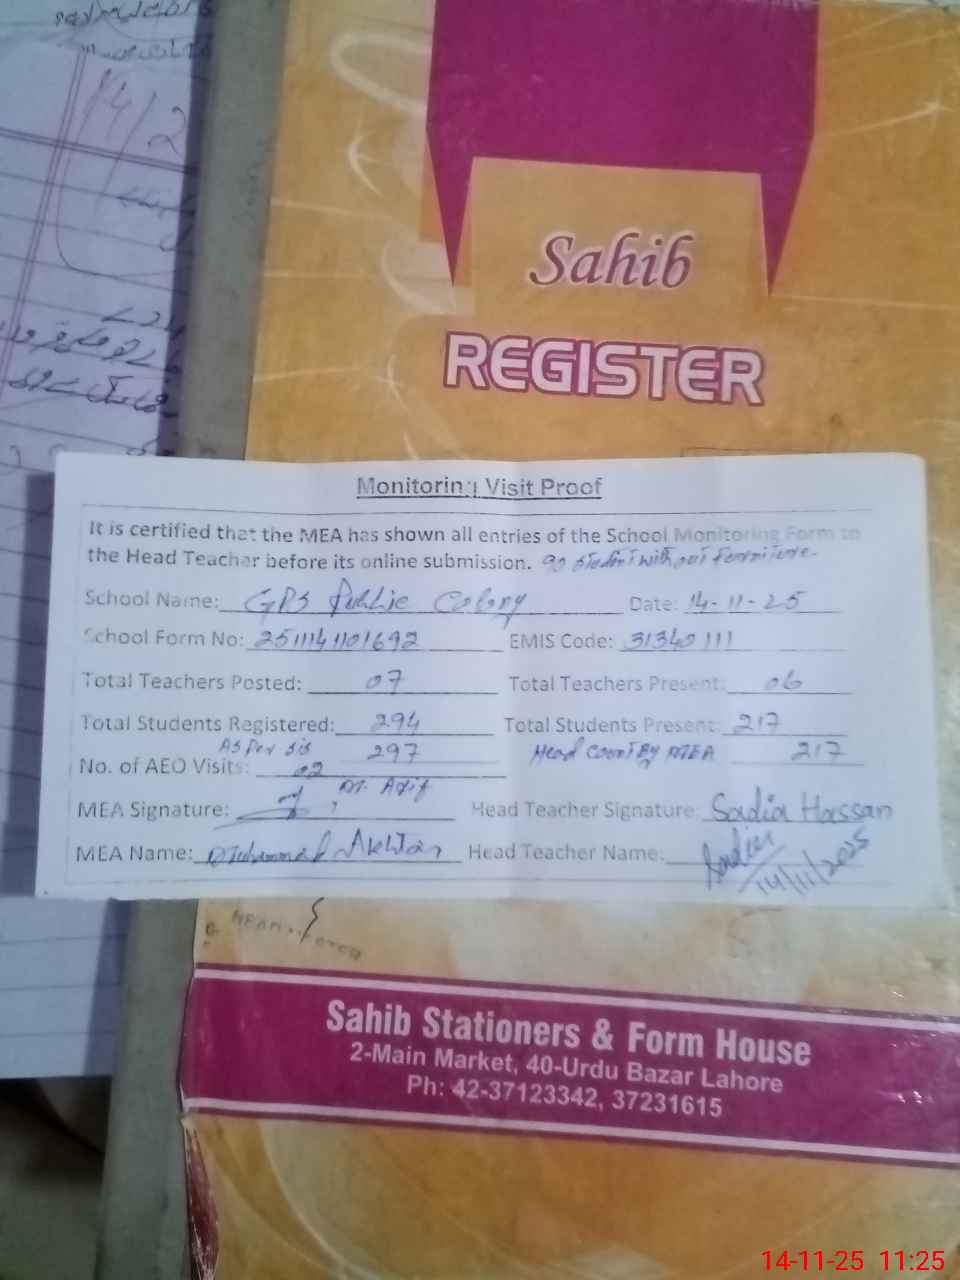 14/2
Sahib
REGISTER
Monitoring Visit Proof
It is certified that the MEA has shown all entries of the School Monitoring Form to
the Head Teacher before its online submission. 90 student without furniture.
School Name: GPS Public Colony Date: 14-11-25
School Form No: 2511141101692 EMIS Code: 31340111
Total Teachers Posted: 07 Total Teachers Present: 06
Total Students Registered: 294 Total Students Present: 217
As Per SIS 297 Head Count By MEA 217
No. of AEO Visits: 02
MEA Signature: Head Teacher Signature: Sadia Hassan
MEA Name: Muhammad Akhtar Head Teacher Name: Sadia
14/11/2025
Sahib Stationers & Form House
2-Main Market, 40-Urdu Bazar Lahore
Ph: 42-37123342, 37231615
14-11-25 11:25